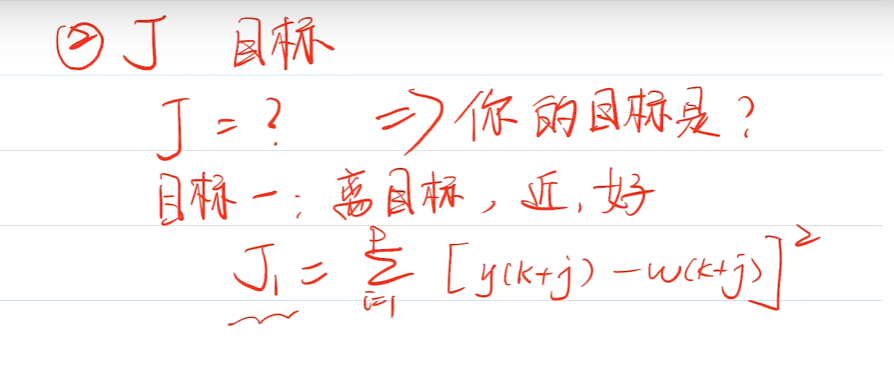 ② J 目标
J = ? ⇒ 你的目标是?
目标一: 离目标, 近, 好
J₁ = Σ_{i=1}^{P} [y(k+j) - w(k+j)]²